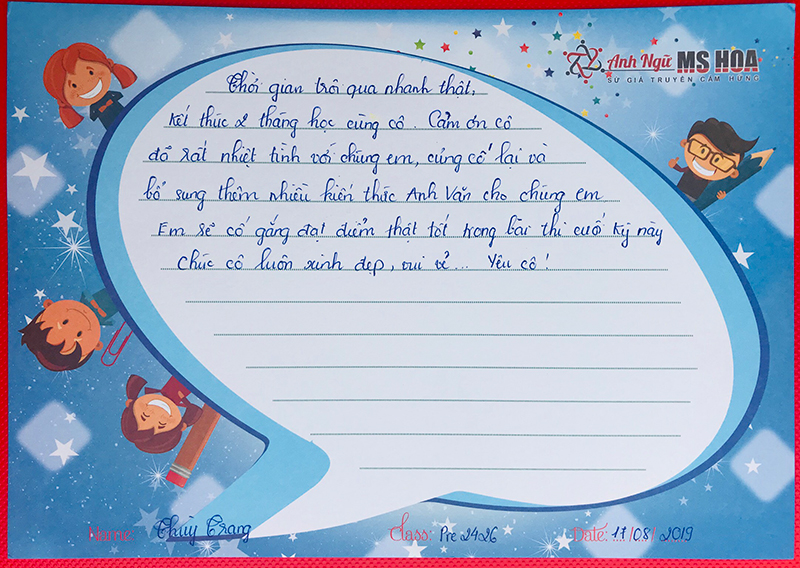 Anh Ngữ MS HOA
SỨ GIẢ TRUYỀN CẢM HỨNG
Thời gian trôi qua nhanh thật,
Kết thúc 2 tháng học cùng cô. Cảm ơn cô
đã rất nhiệt tình với chúng em, củng cố lại và
bổ sung thêm nhiều kiến thức Anh Văn cho chúng em
Em sẽ cố gắng đạt điểm thật tốt trong bài thi cuối kỳ này
Chúc cô luôn xinh đẹp, vui vẻ... Yêu cô!
Name: Thùy Trang Class: Pre 2426 Date: 17/08/2019